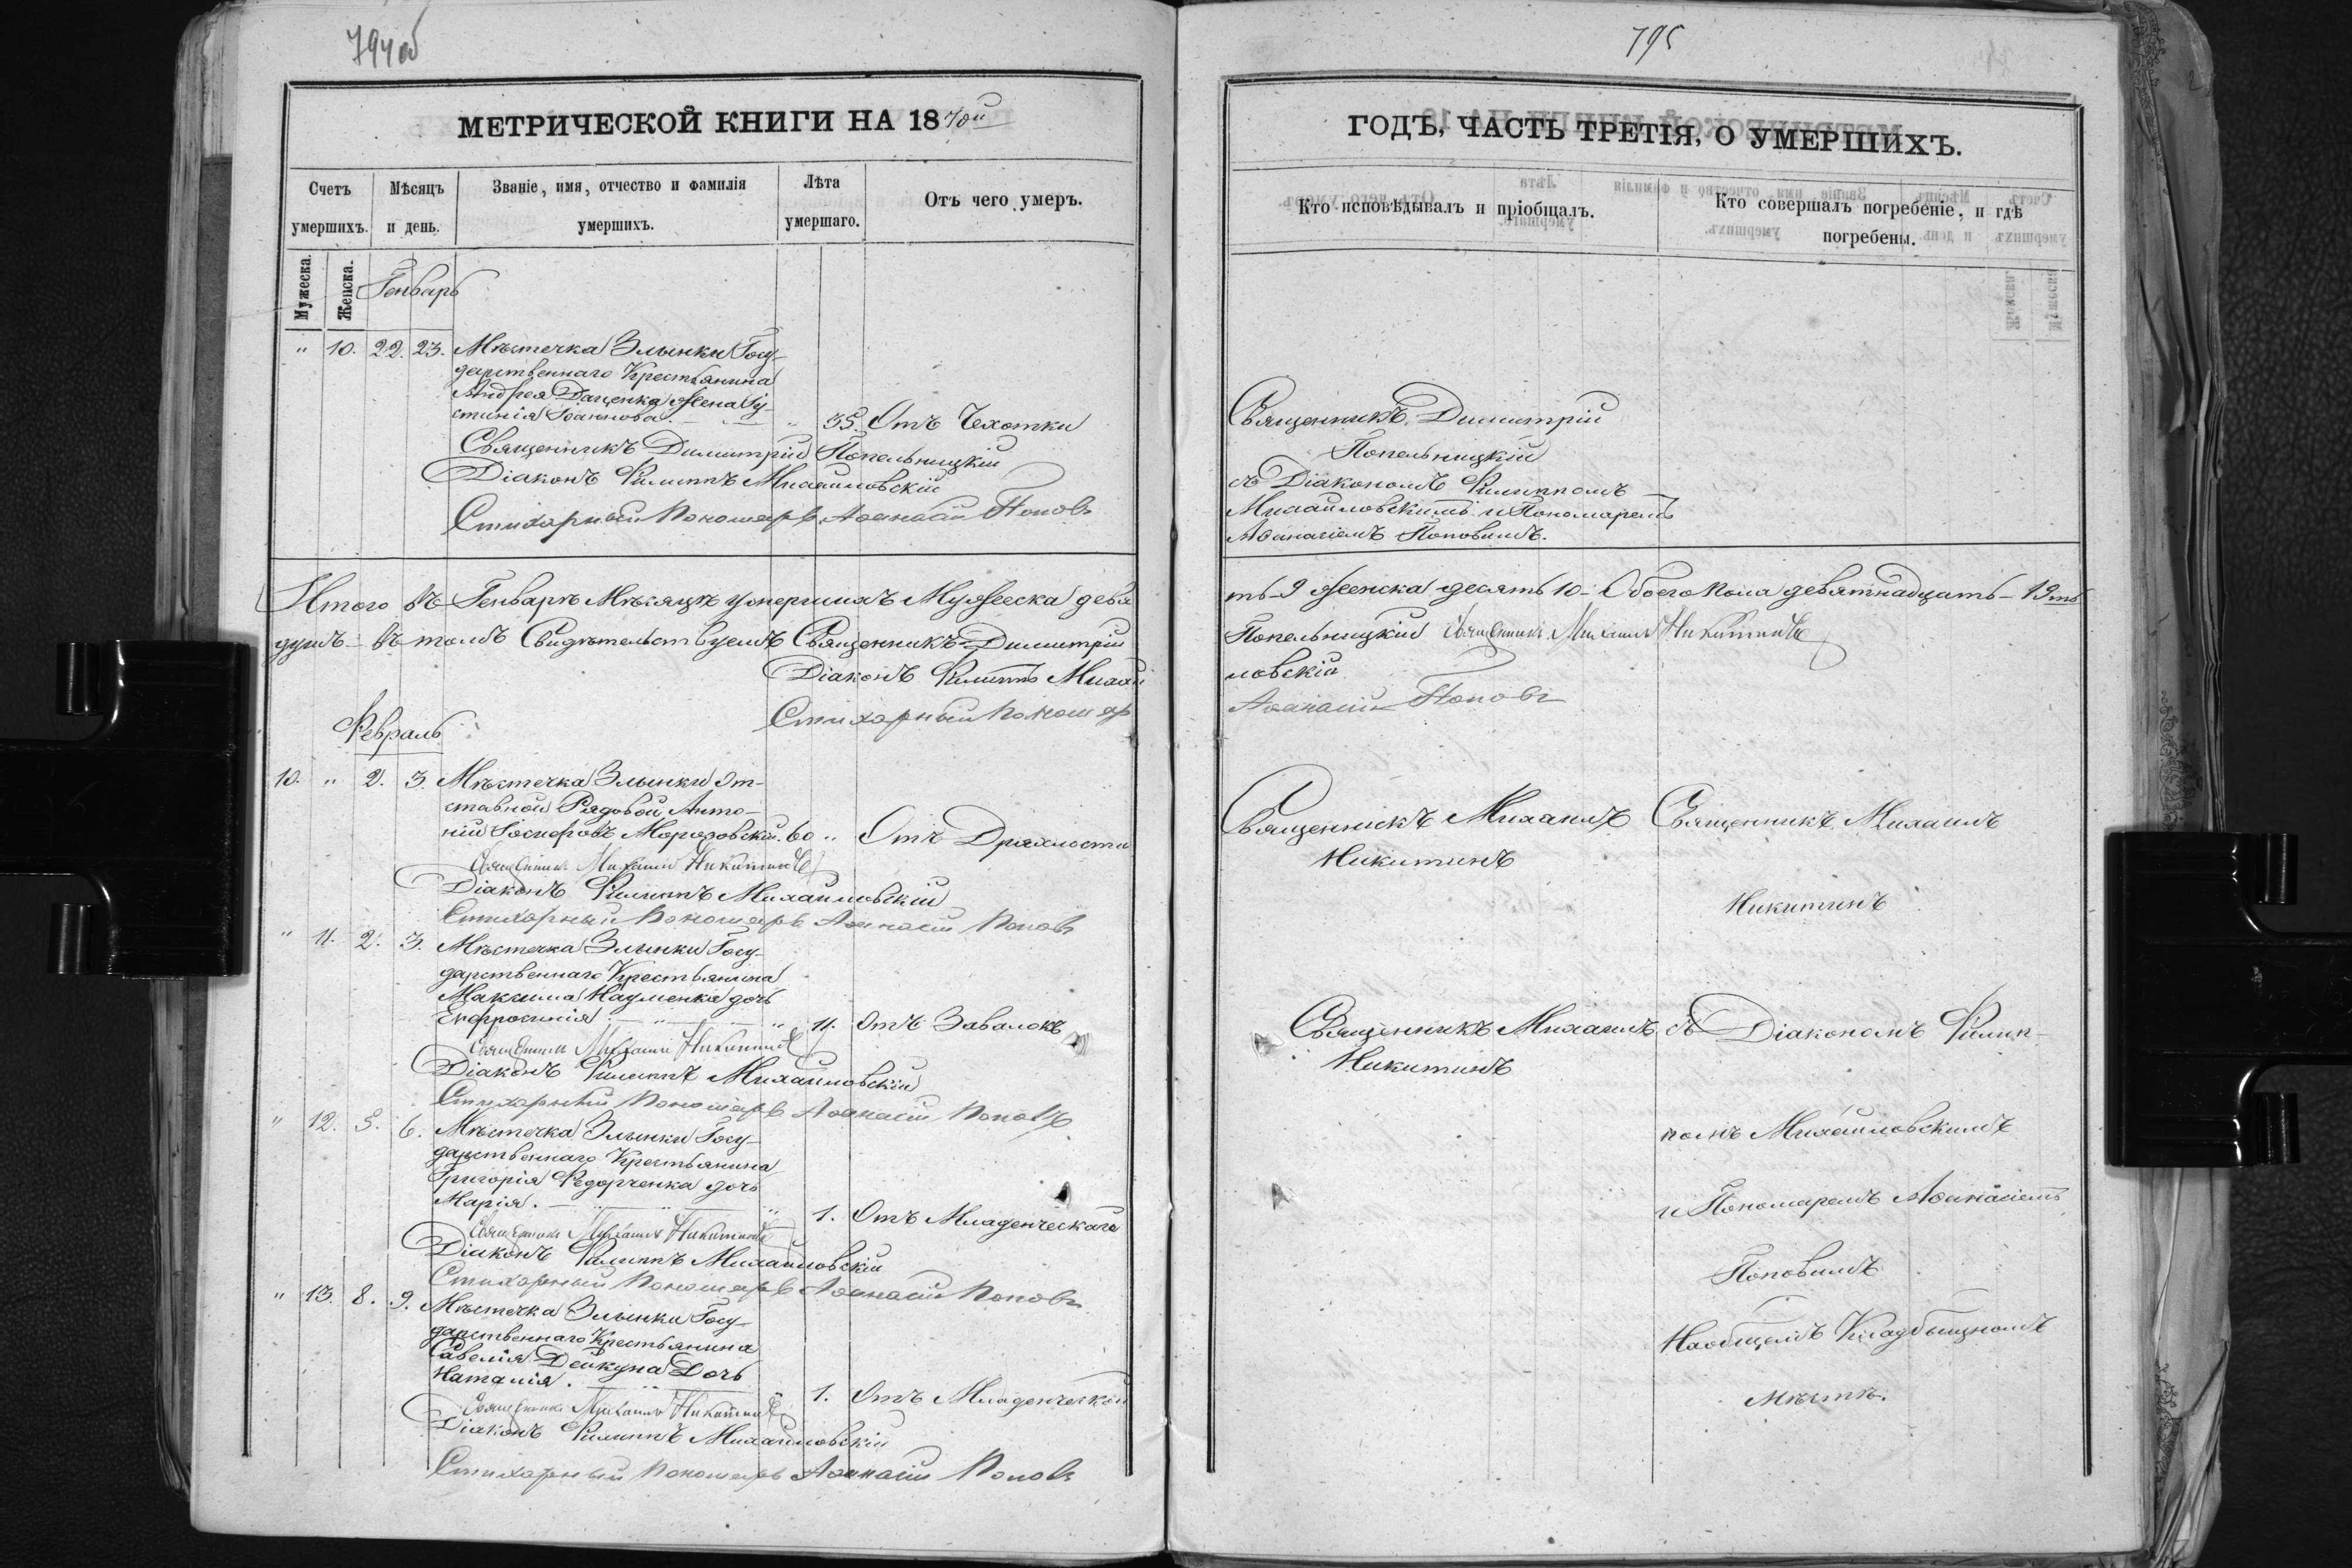 794об
МЕТРИЧЕСКОЙ КНИГИ НА 1870й
Счетъ умершихъ.
Мѣсяцъ и день.
Званіе, имя, отчество и фамилія умершихъ.
Лѣта умершаго.
Отъ чего умеръ.
Мужеска.
Женска.
Генварь
" 10. 22. 23. Мѣстечка Злынки Госу-
дарственнаго Крестьянина
Андрея Даценка жена Іу-
стинія Іоаннова. — " 35. Отъ Чахотки
Священникъ Димитрій Попельницкій
Діаконъ Филиппъ Михайловскій
Стихарный Пономарь Аѳанасій Поповъ
Итого въ Генварѣ Мѣсяцѣ умершихъ Мужеска девя
душъ — въ томъ Свидѣтельствуемъ Священникъ Димитрій
Діаконъ Филиппъ Михай
Стихарный Пономар
Февраль
10. " 2. 3. Мѣстечка Злынки От-
ставной Рядовой Анто-
ній Іосифовъ Морозовскій. 60 " Отъ Дряхлости
Священникъ Михаилъ Никитинъ
Діаконъ Филиппъ Михайловскій
Стихарный Пономарь Аѳанасій Поповъ
" 11. 2. 3. Мѣстечка Злынки Госу-
дарственнаго Крестьянина
Максима Науменка дочь
Евфросинія — " — " 11. Отъ Завалокъ
Священникъ Михаилъ Никитинъ
Діаконъ Филиппъ Михайловскій
Стихарный Пономарь Аѳанасій Поповъ
" 12. 5. 6. Мѣстечка Злынки Госу-
дарственнаго Крестьянина
Григорія Федорченка дочь
Марія. — " — " 1. Отъ Младенческаго
Священникъ Михаилъ Никитинъ
Діаконъ Филиппъ Михайловскій
Стихарный Пономарь Аѳанасій Поповъ
" 13. 8. 9. Мѣстечка Злынки Госу-
дарственнаго Крестьянина
Савелія Дейкуна Дочь
Наталія. — " — " 1. Отъ Младенческой
Священникъ Михаилъ Никитинъ
Діаконъ Филиппъ Михайловскій
Стихарный Пономарь Аѳанасій Поповъ
795
ГОДЪ, ЧАСТЬ ТРЕТІЯ, О УМЕРШИХЪ.
Кто исповѣдывалъ и пріобщалъ.
Кто совершалъ погребеніе, и гдѣ
погребены.
Священникъ Димитрій
Попельницкій
съ Діакономъ Филиппомъ
Михайловскимъ и Пономаремъ
Аѳанасіемъ Поповымъ.
ть — 9 женска десять 10 — Обоего пола девятнадцать — 19ть
Попельницкій Священникъ Михаилъ Никитинъ
ловскій
Аѳанасій Поповъ
Священникъ Михаилъ
Никитинъ
Священникъ Михаилъ
Никитинъ
Священникъ Михаилъ
Никитинъ
съ Діакономъ Филип-
помъ Михайловскимъ
и Пономаремъ Аѳанасіемъ
Поповымъ
На общемъ Кладбищномъ
мѣстѣ.